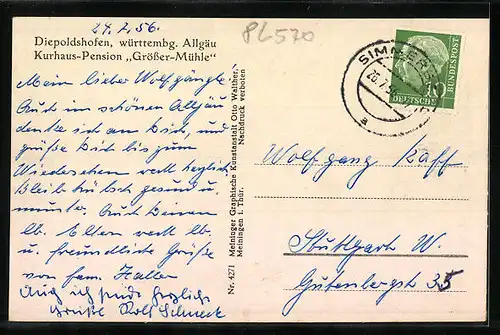 24.2.56.
PL 570
Diepoldshofen, württembg. Allgäu
Kurhaus-Pension „Größer-Mühle"
Mein lieber Wolfgängle.
Auch im schönen Allgäu
denke ich an Dich, und
grüße Dich bis zum
Wiedersehen recht herzlich
Bleib hübsch gesund u.
munter. Auch Deinen
lb. Eltern recht lb.
u. freundliche Grüße
von fam. Haller
Auch ich sende herzliche
Grüße Rolf Schmeck
Nr. 4271 Meininger Graphische Kunstanstalt Otto Walther,
Meiningen i. Thür. Nachdruck verboten
SIMMER
a
10
DEUTSCHE
BUNDESPOST
Wolfgang Kaff
Stuttgart W.
Gutenbergstr 35